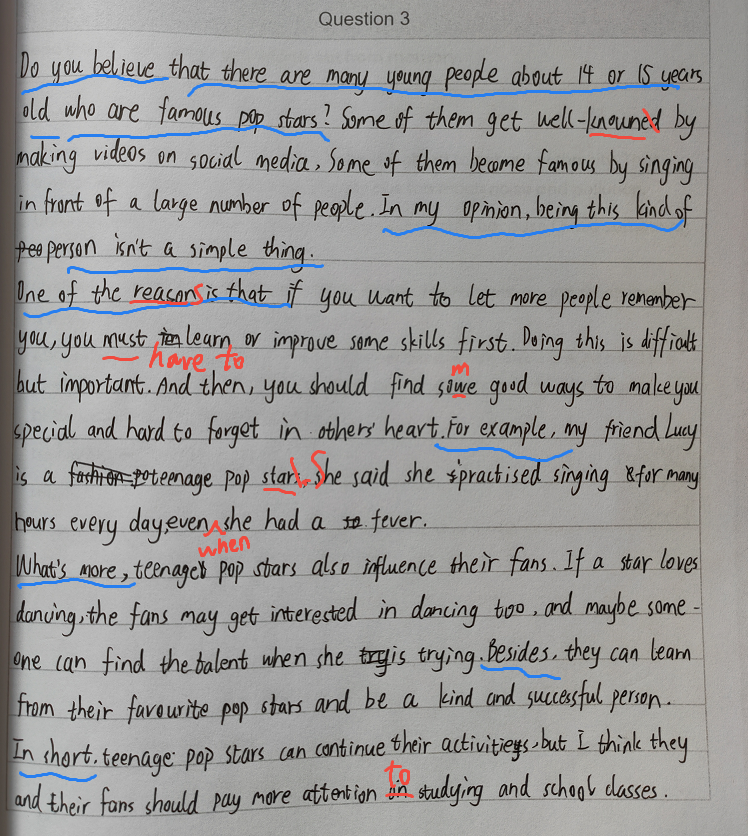 Question 3
Do you believe that there are many young people about 14 or 15 years
old who are famous pop stars? Some of them get well-knouned by
making videos on social media, Some of them become famous by singing
in front of a large number of people. In my opinion, being this kind of
peo person isn't a simple thing.
One of the reasons is that if you want to let more people remember
you, you must in learn or improve some skills first. Doing this is difficult
have to
m
but important. And then, you should find sowe good ways to make you
special and hard to forget in others' heart. For example, my friend Lucy
is a fashion po teenage pop star. She said she practised singing for many
hours every day, even she had a to fever.
when
What's more, teenage pop stars also influence their fans. If a star loves
dancing, the fans may get interested in dancing too, and maybe some-
one can find the talent when she try is trying. Besides, they can learn
from their favourite pop stars and be a kind and successful person.
In short, teenage pop stars can continue their activities, but I think they
to
and their fans should pay more attention in studying and school classes.